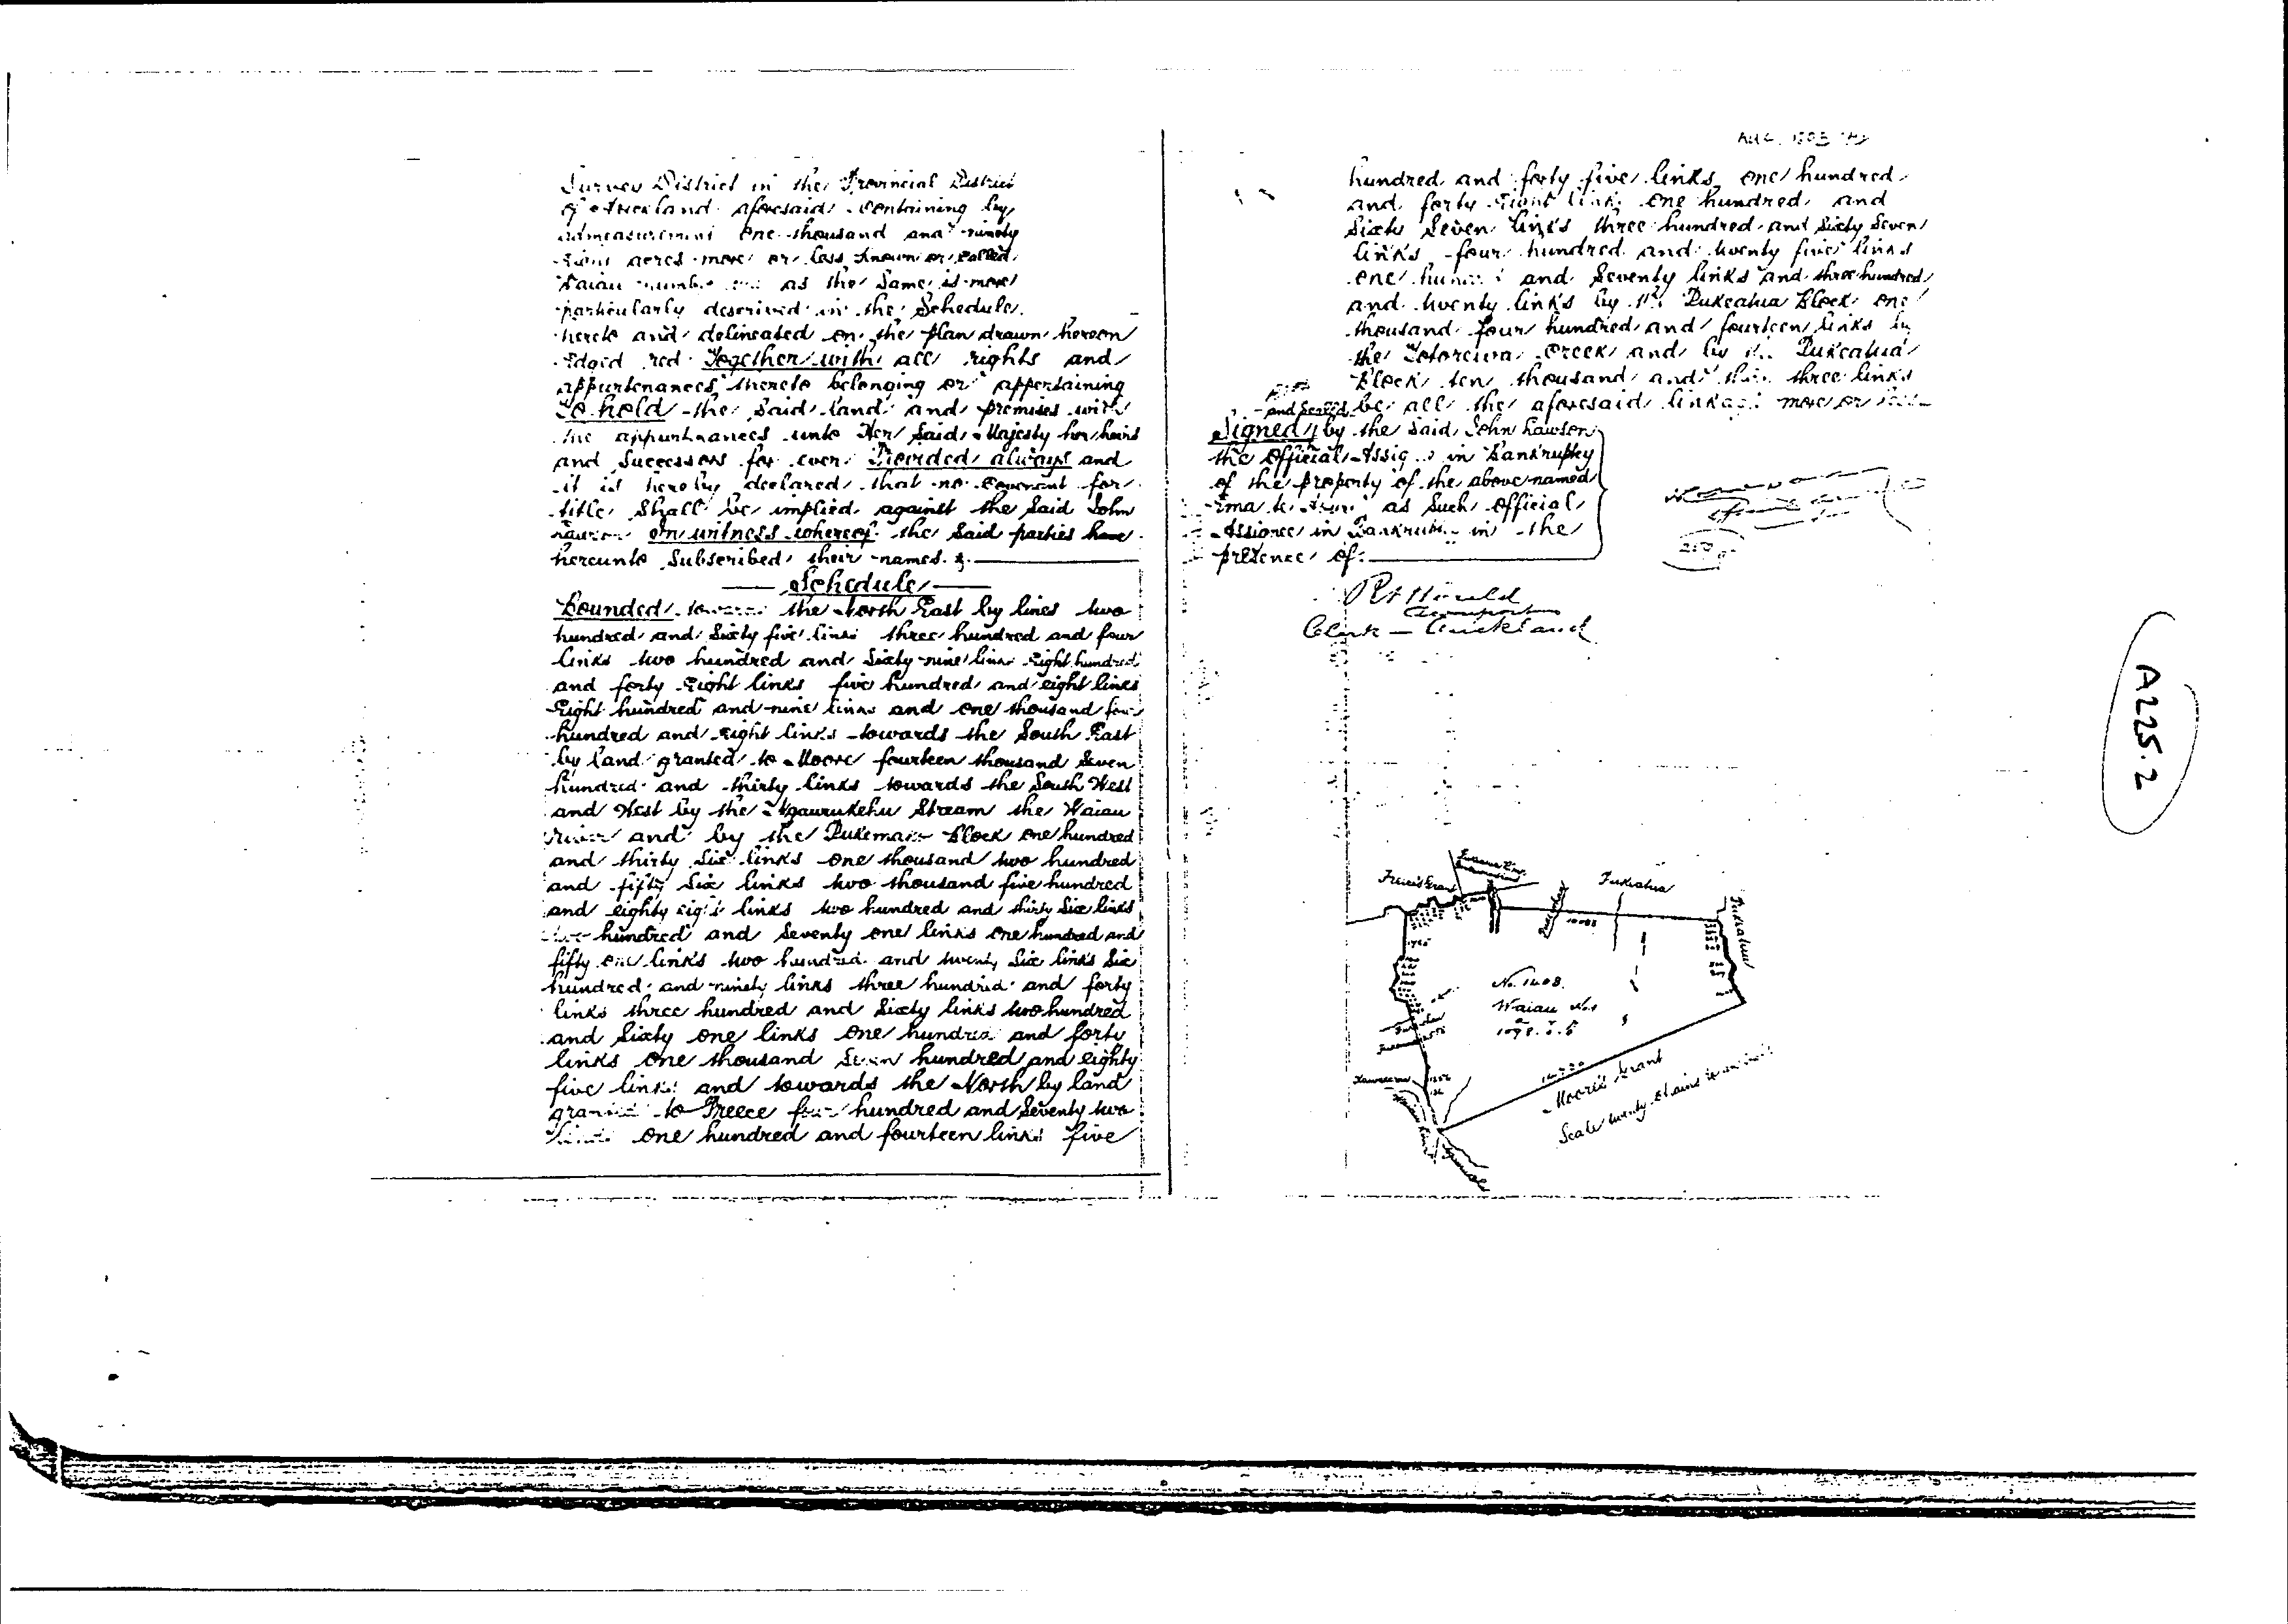 Survey District in the Provincial District
of Auckland aforesaid containing by
admeasurement One thousand and ninety
eight acres more or less known or called
Waiau number as the same is more
particularly described in the Schedule
hereto and delineated on the plan drawn hereon
edged red Together with all rights and
appurtenances thereto belonging or appertaining
To hold the said land and premises with
the appurtenances unto Her said Majesty her heirs
and Successors for ever Provided always and
it is hereby declared that no Covenant for
title shall be implied against the said John
Lawson In witness whereof the said parties have
hereunto subscribed their names.
Schedule
Bounded towards the North East by lines two
hundred and sixty five links three hundred and four
links two hundred and sixty nine links Eight hundred
and forty Eight links five hundred and eight links
Eight hundred and nine links and one thousand four
hundred and Eight links towards the South East
by land granted to Moore fourteen thousand seven
hundred and thirty links towards the South West
and West by the Ngaurukehu Stream the Waiau
River and by the Block one hundred
and thirty six links one thousand two hundred
and fifty six links two thousand five hundred
and eighty eight links two hundred and thirty six links
hundred and seventy one links one hundred and
fifty one links two hundred and twenty six links six
hundred and ninety links three hundred and forty
links three hundred and sixty links two hundred
and sixty one links one hundred and forty
links one thousand seven hundred and eighty
five links and towards the North by land
granted to Preece four hundred and seventy two
links one hundred and fourteen links five
hundred and forty five links one hundred
and forty Eight links one hundred and
sixty seven links three hundred and sixty seven
links four hundred and twenty five links
one hundred and seventy links and three hundred
and twenty links by the Pukeatua Block one
thousand four hundred and fourteen links by
the Totoreiwa Creek and by the Pukeatua
Block ten thousand and three links
be all the aforesaid linkages more or less
and sealed
Signed by the said John Lawson
the Official Assignee in Bankruptcy
of the property of the above named
as such Official
Assignee in Bankruptcy in the
presence of
Clerk — Auckland
A225.2
Pukeatua
Pukeatua
10083
No. 1408.
Waiau No 1
1098.
14730
Moore's Grant
Scale twenty chains to an inch